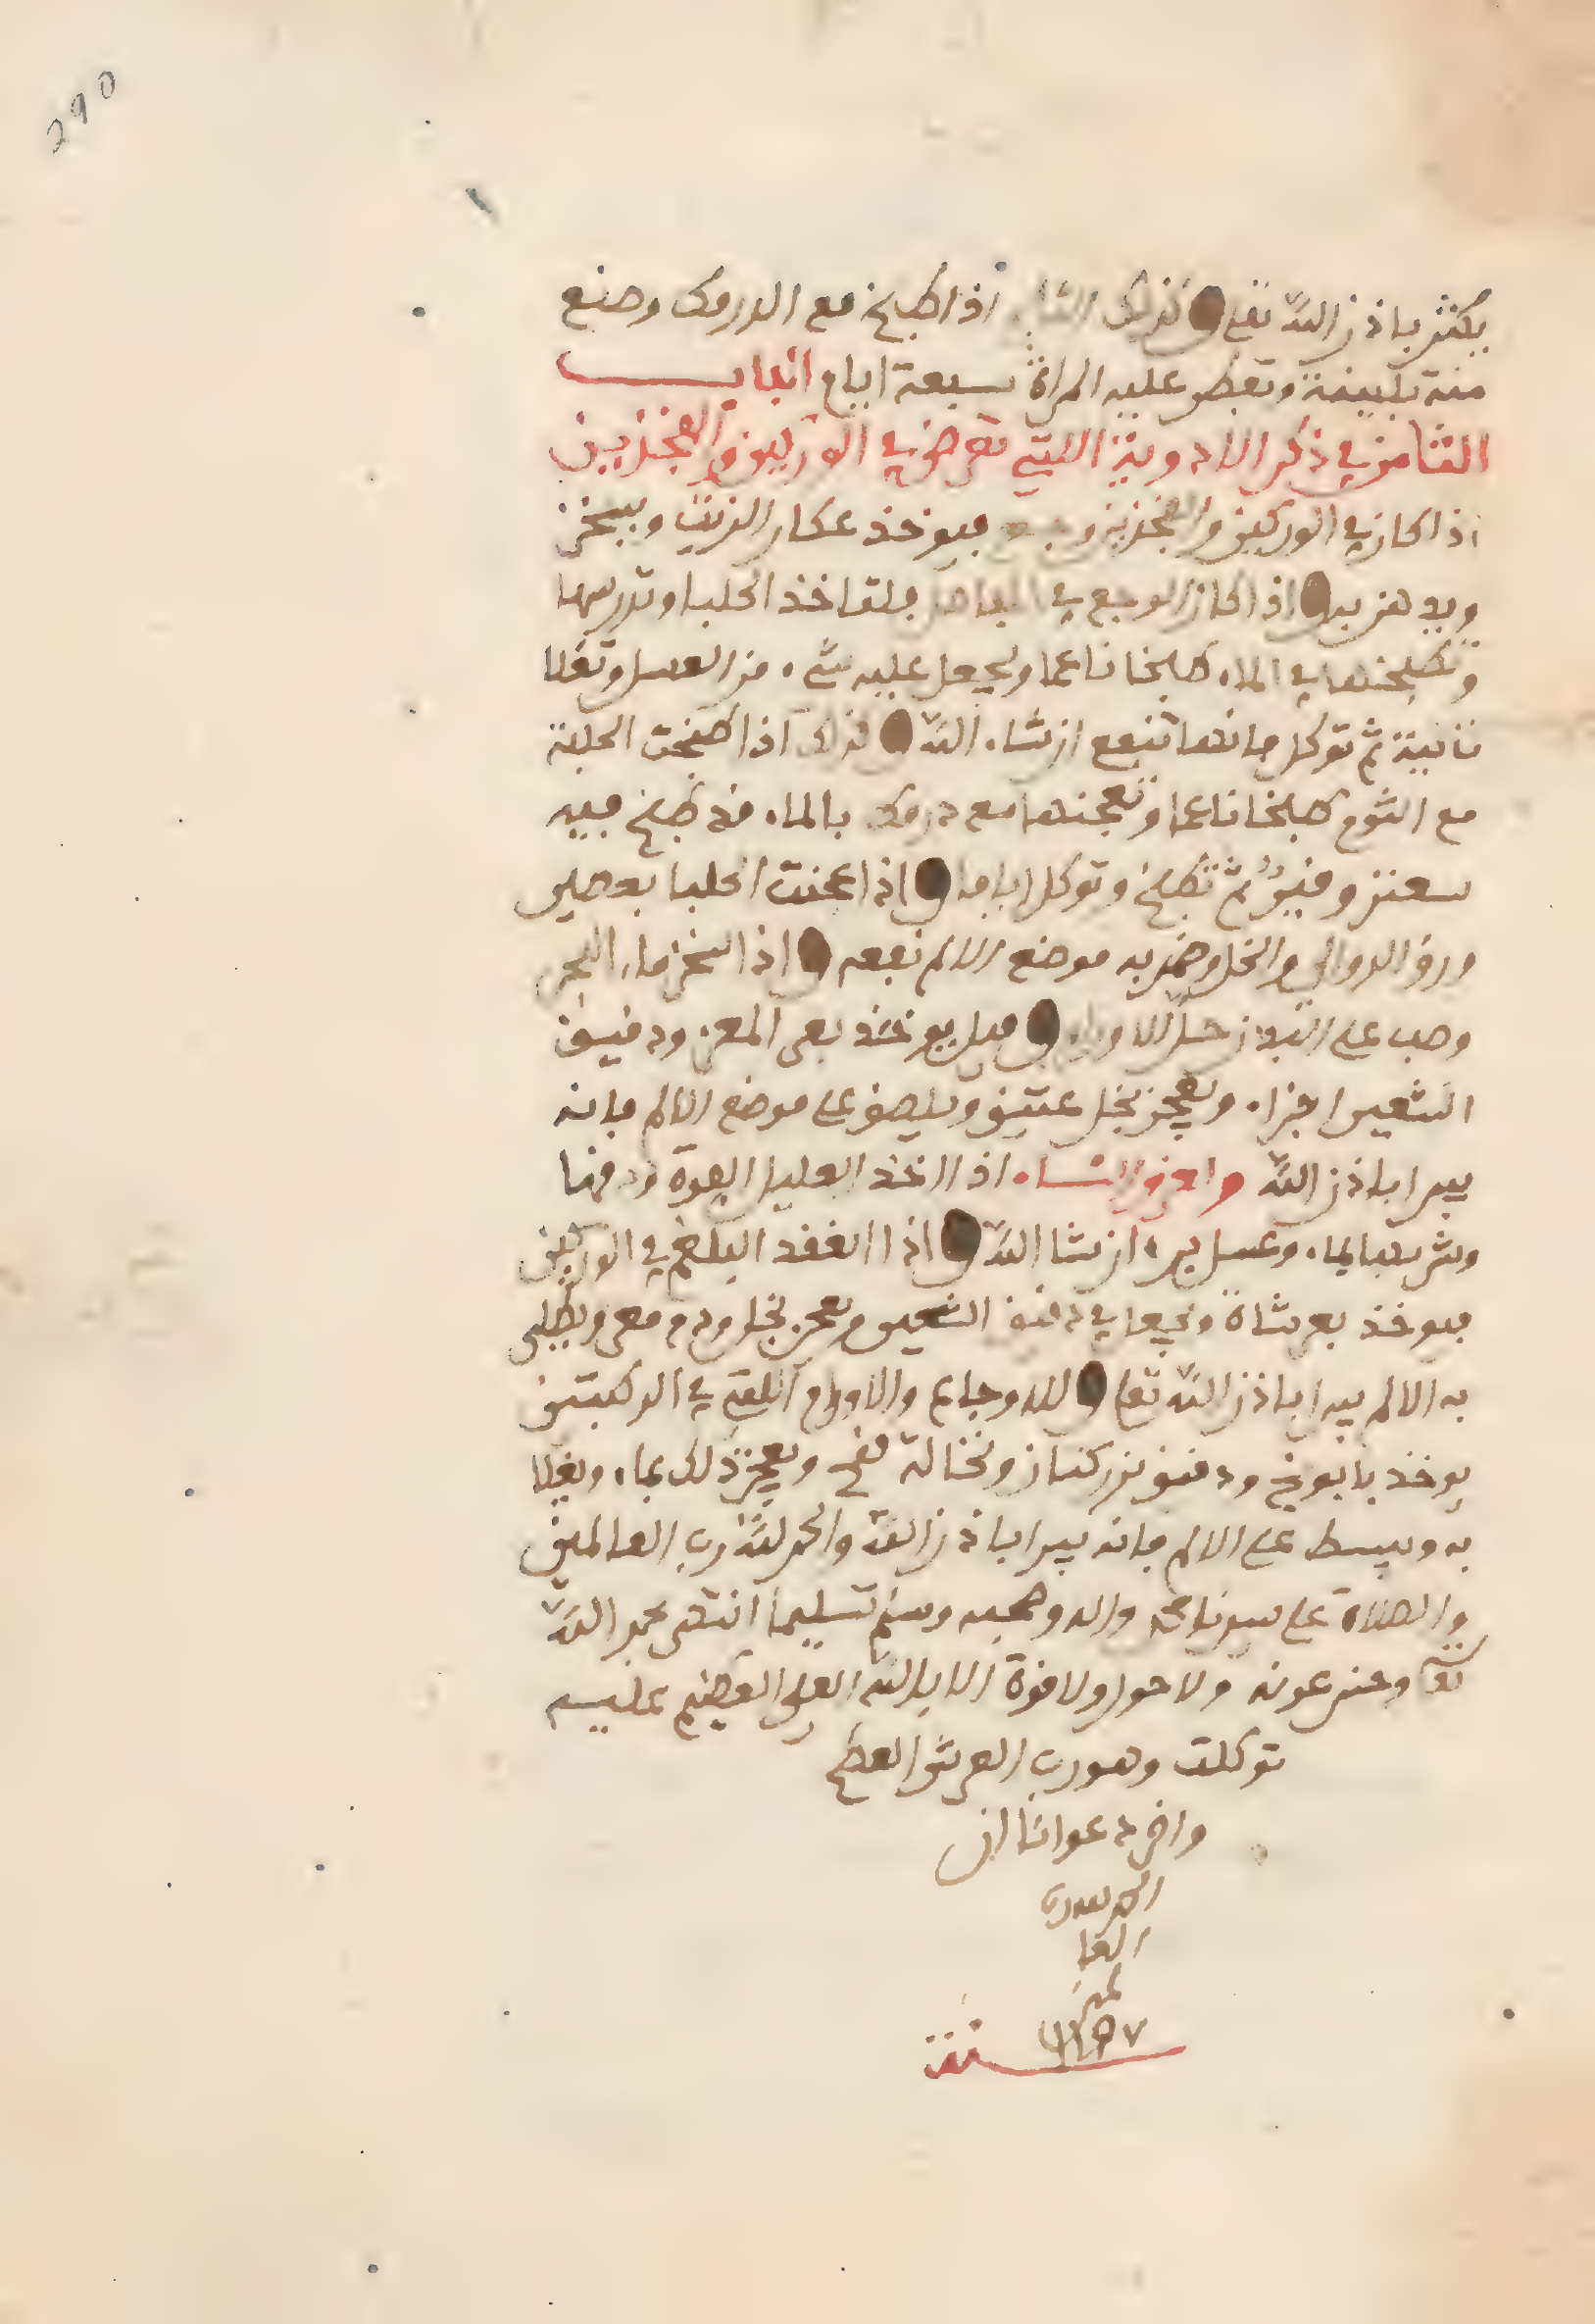 290
يكثر باذن الله تعلى وكذلك اذا طبخ مع الدرمك وصنع
منه تلبينة وتفطر عليه المراة سبعة ايام الباب
الثامن في ذكر الادوية اللتي تعرض في الوركين والفخذين
اذا كان في الوركين والفخذين وجع فيوخذ عكار الزيت ويسخن
ويدهن به واذا كان الوجع في المفاصل فلتاخذ الحلبا وتدرسها
وتطبخها في الماء طبخا ناعما ويجعل عليه شيء من العسل وتغلا
ثانية ثم توكل فانها تنفع ان شاء الله وكذلك اذا طبخت الحلبة
مع الثوم طبخا ناعما وتعجنها مع درمك بالماء قد طبخ فيه
سعتر وفيجل ثم تطبخ وتوكل اياما واذا عجنت الحلبا بعصير
ورق الدوالي والخل وضمد به موضع الالم نفعه واذا سخن ماء البحر
وصب على البدن حلل الاورام وقيل يوخذ بعر المعز ودقيق
الشعير اجزاء ويعجن بخل عتيق ويلصق على موضع الالم فانه
يبرا باذن الله وعرق النساء اذا اخذ العليل الفوة ودقها
وشربها بماء وعسل برء ان شا الله واذا انعقد البلغم في الوركين
فيوخذ بعر شاة ويجعل في دقيق الشعير ويعجن بخل ودم معز ويطلى
به الالم يبرا باذن الله تعلى وللاوجاع والاورام اللتي في الركبتين
يوخذ بابونج ودقيق بزر كتان ونخالة قمح ويعجن ذلك بماء ويغلا
به ويبسط على الالم فانه يبرا باذن الله والحمد لله رب العالمين
والصلاة على سيدنا محمد واله وصحبه وسلم تسليما انتهى بحمد الله
تعلى وحسن عونه ولا حول ولا قوة الا بالله العلي العظيم عليه
توكلت وهو رب العرش العظيم
واخر دعوانا ان
الحمد لله رب
العا
لمين
سنة